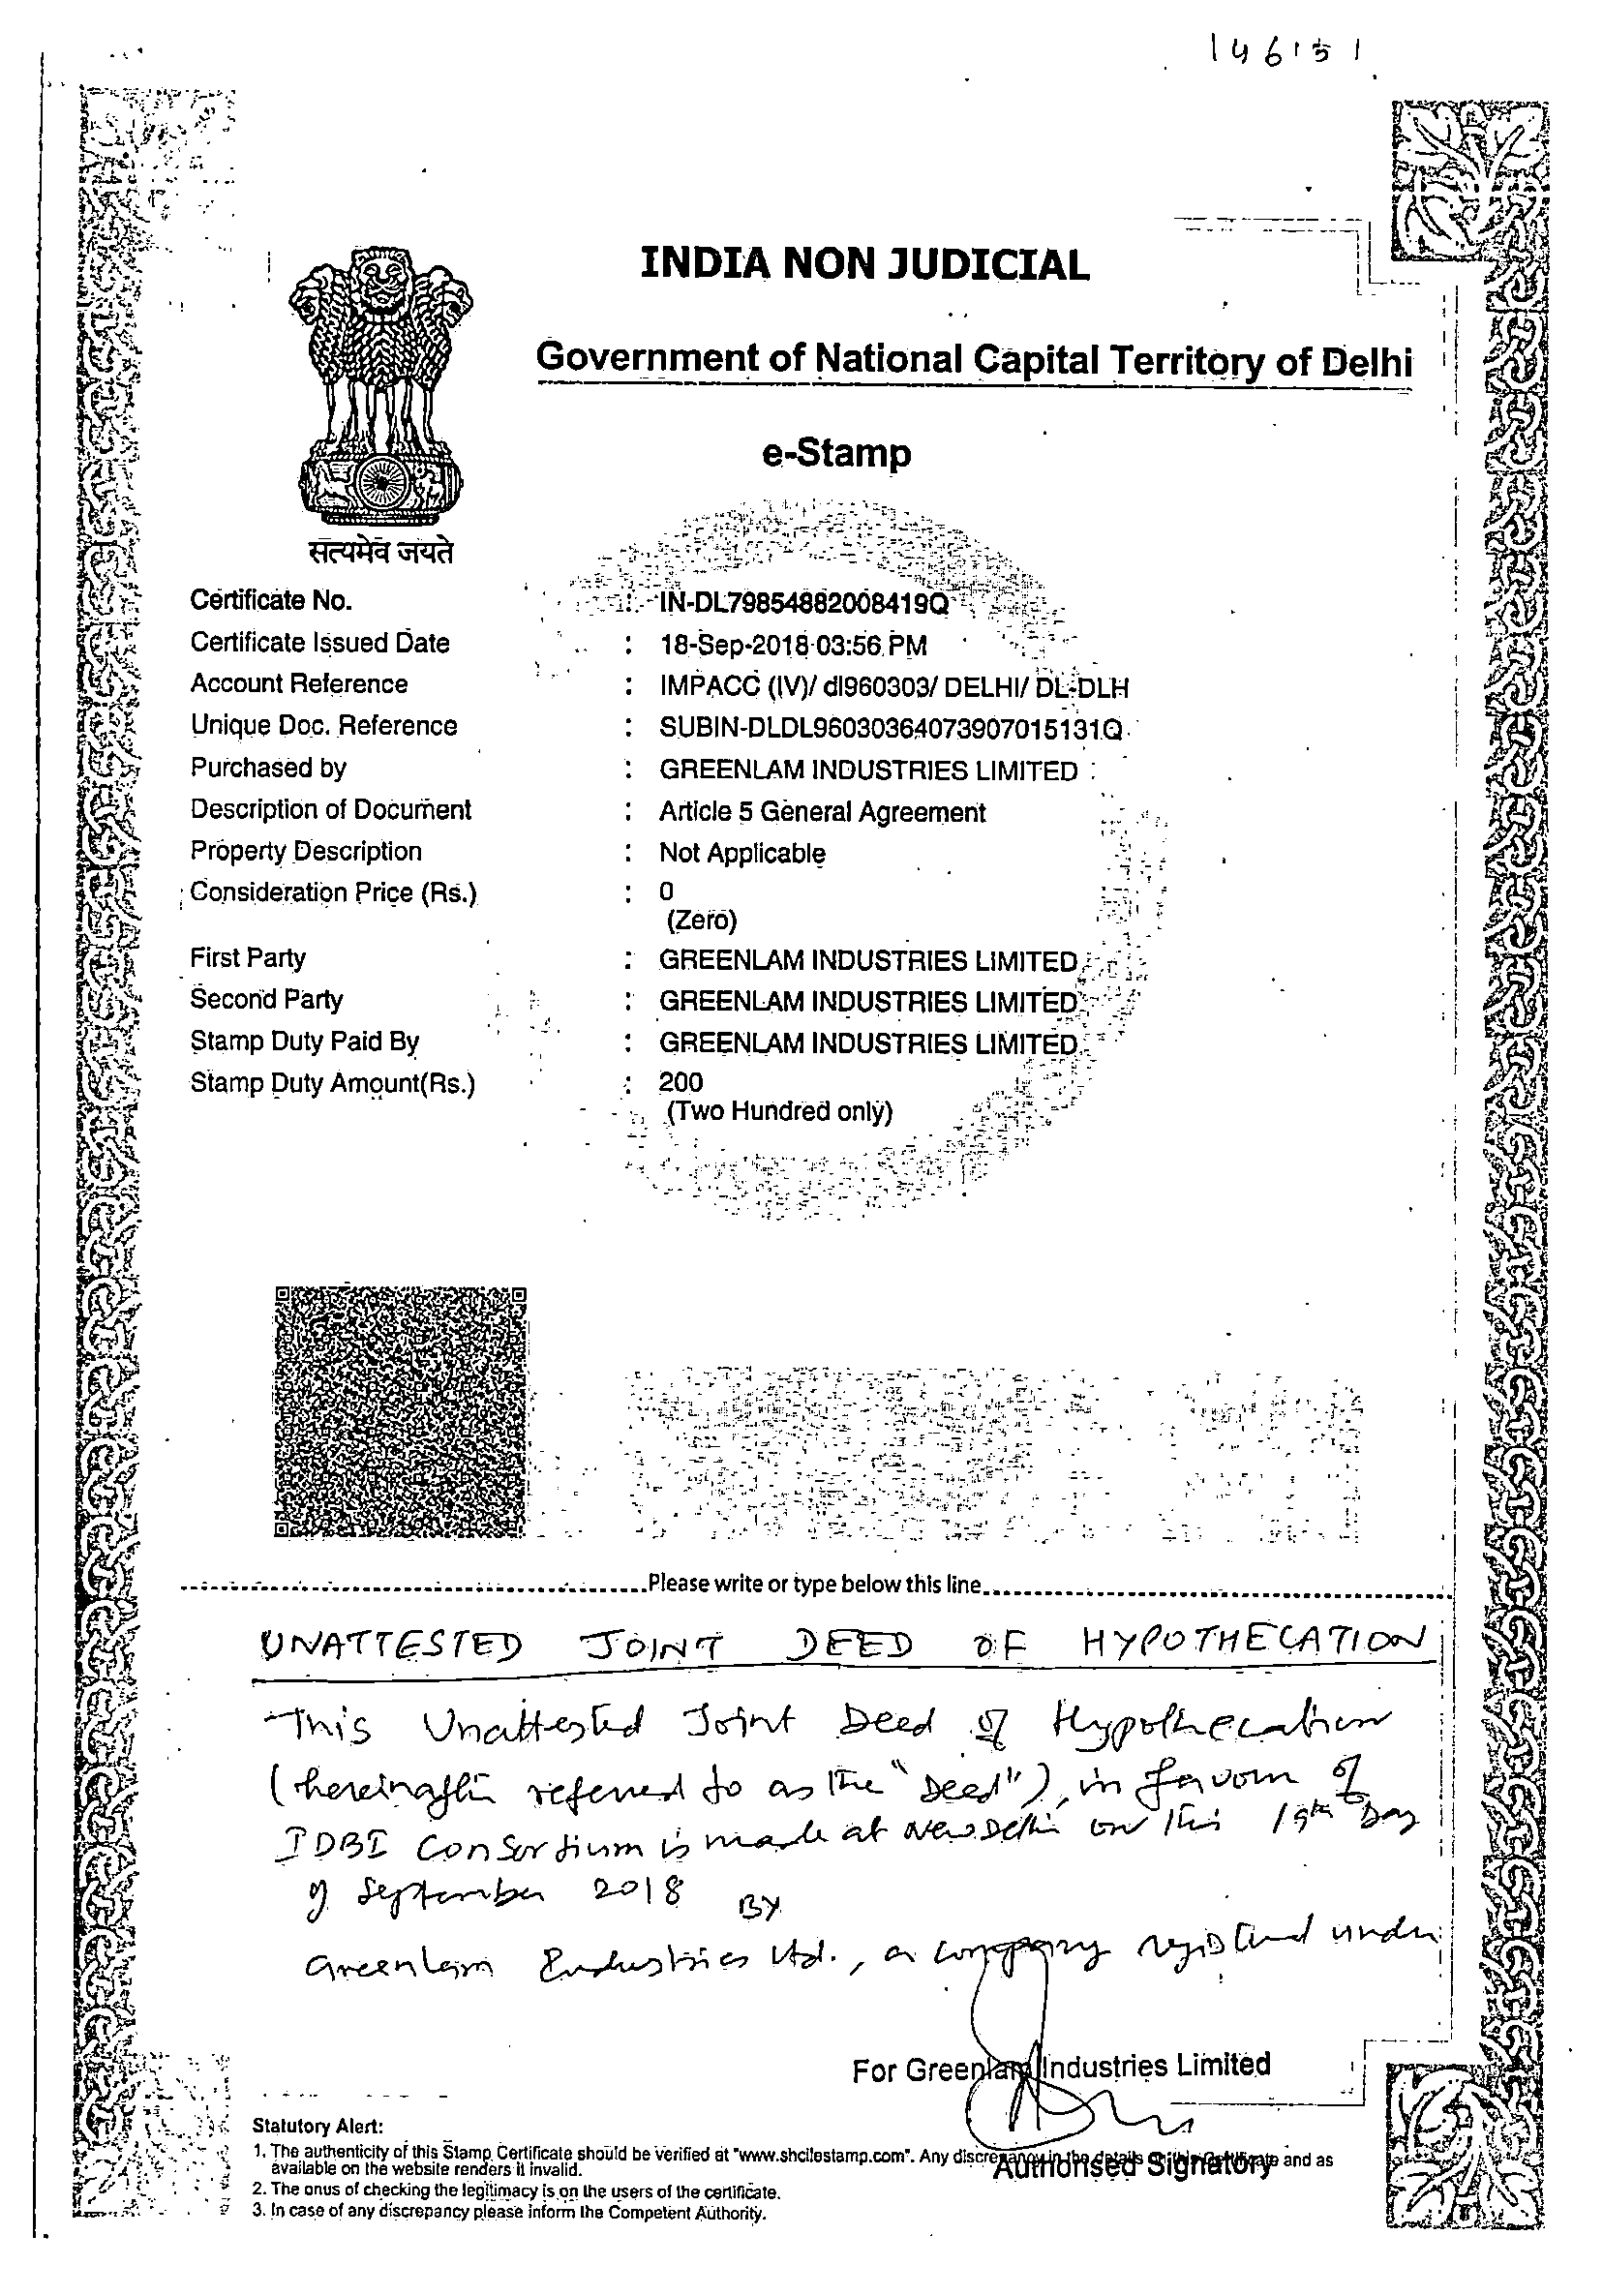 146151
INDIA NON JUDICIAL
Government of National Capital Territory of Delhi
e-Stamp
सत्यमेव जयते
Certificate No. : IN-DL79854882008419Q
Certificate Issued Date : 18-Sep-2018 03:56 PM
Account Reference : IMPACC (IV)/ dl960303/ DELHI/ DL-DLH
Unique Doc. Reference : SUBIN-DLDL96030364073907015131Q
Purchased by : GREENLAM INDUSTRIES LIMITED
Description of Document : Article 5 General Agreement
Property Description : Not Applicable
Consideration Price (Rs.) : 0
(Zero)
First Party : GREENLAM INDUSTRIES LIMITED
Second Party : GREENLAM INDUSTRIES LIMITED
Stamp Duty Paid By : GREENLAM INDUSTRIES LIMITED
Stamp Duty Amount(Rs.) : 200
(Two Hundred only)
Please write or type below this line
UNATTESTED JOINT DEED OF HYPOTHECATION
This Unattested Joint Deed of Hypothecation
(hereinafter referred to as the "Deed"), in favour of
IDBI Consortium is made at New Delhi on this 19th Day
of September 2018
BY
Greenlam Industries Ltd., a company registered under
For Greenlam Industries Limited
Authorised Signatory
Statutory Alert:
1. The authenticity of this Stamp Certificate should be verified at "www.shcilestamp.com". Any discrepancy in the details on this Certificate and as
available on the website renders it invalid.
2. The onus of checking the legitimacy is on the users of the certificate.
3. In case of any discrepancy please inform the Competent Authority.